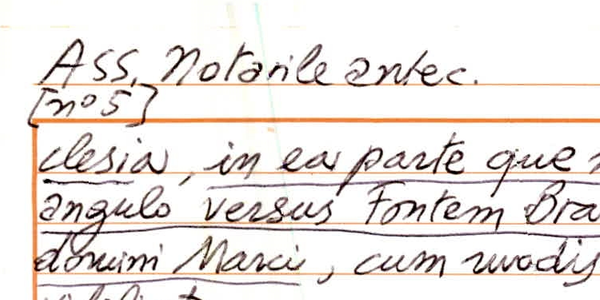 Ass. Notarile antec.
[nº 5]
clesia, in ea parte que
angulo versus Fontem Bra
domini Marci, cum modis